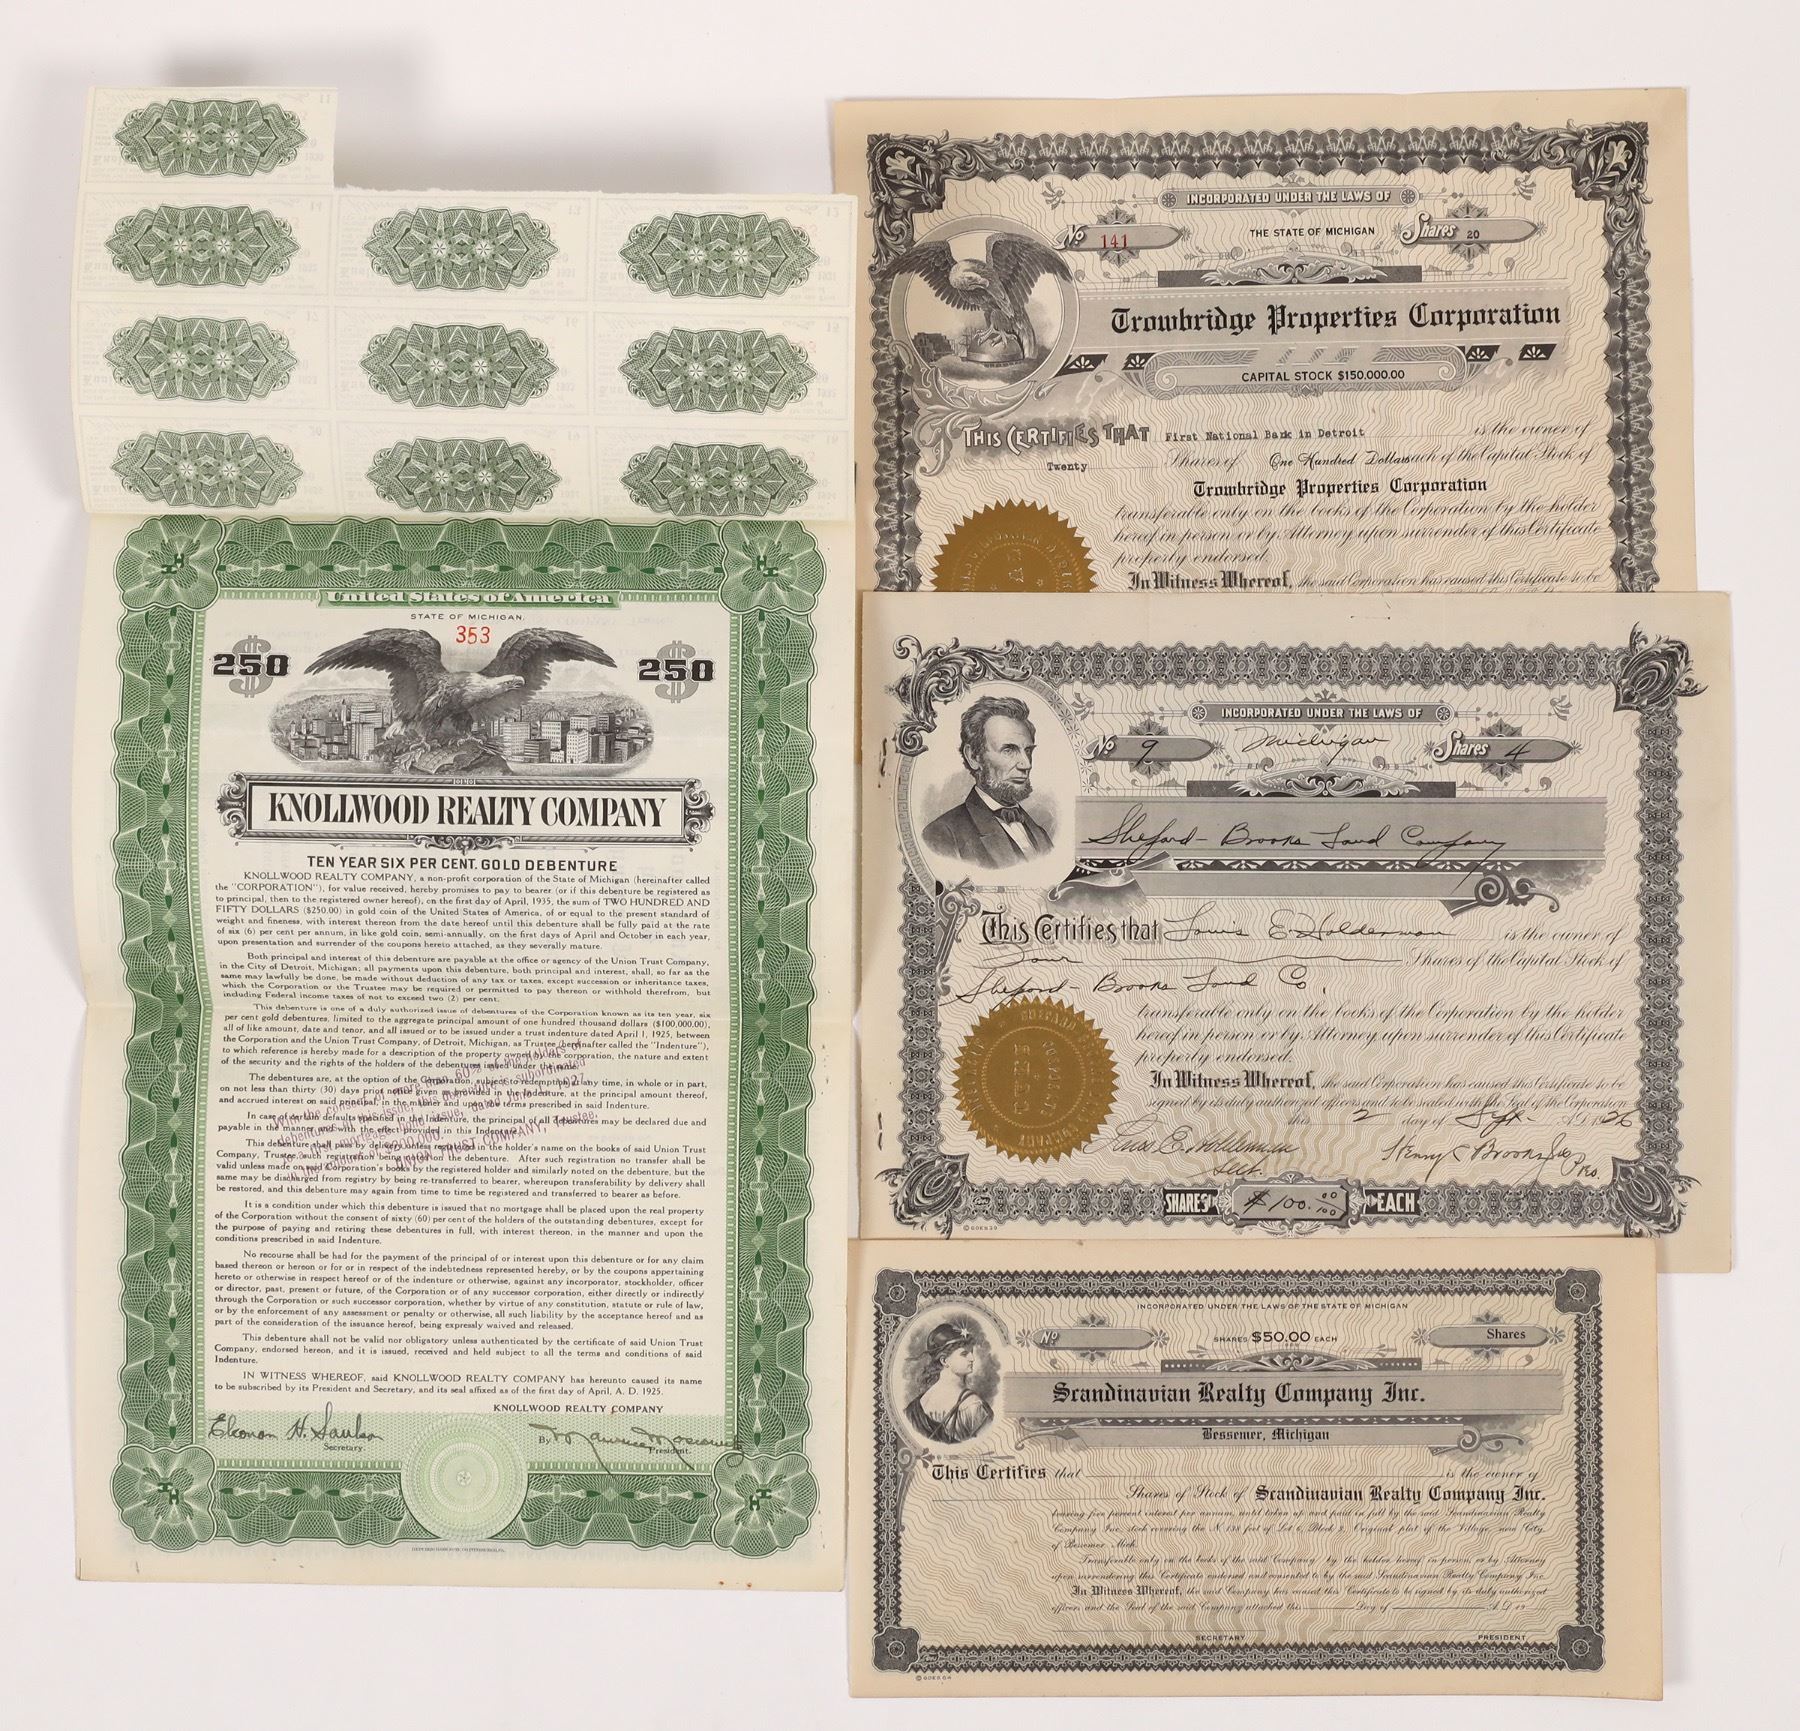 United States of America
STATE OF MICHIGAN.
353
250 250
KNOLLWOOD REALTY COMPANY
TEN YEAR SIX PER CENT. GOLD DEBENTURE
KNOLLWOOD REALTY COMPANY, a non-profit corporation of the State of Michigan (hereinafter called
the "CORPORATION"), for value received, hereby promises to pay to bearer (or if this debenture be registered as
to principal, then to the registered owner hereof), on the first day of April, 1935, the sum of TWO HUNDRED AND
FIFTY DOLLARS ($250.00) in gold coin of the United States of America, of or equal to the present standard of
weight and fineness, with interest thereon from the date hereof until this debenture shall be fully paid at the rate
of six (6) per cent per annum, in like gold coin, semi-annually, on the first days of April and October in each year,
upon presentation and surrender of the coupons hereto attached, as they severally mature.
Both principal and interest of this debenture are payable at the office or agency of the Union Trust Company,
in the City of Detroit, Michigan; all payments upon this debenture, both principal and interest, shall, so far as the
same may lawfully be done, be made without deduction of any tax or taxes, except succession or inheritance taxes,
which the Corporation or the Trustee may be required or permitted to pay thereon or withhold therefrom, but
including Federal income taxes of not to exceed two (2) per cent.
This debenture is one of a duly authorized issue of debentures of the Corporation known as its ten year, six
per cent gold debentures, limited to the aggregate principal amount of one hundred thousand dollars ($100,000.00),
all of like amount, date and tenor, and all issued or to be issued under a trust indenture dated April 1, 1925, between
the Corporation and the Union Trust Company, of Detroit, Michigan, as Trustee (hereinafter called the "Indenture"),
to which reference is hereby made for a description of the property owned by the corporation, the nature and extent
of the security and the rights of the holders of the debentures issued under the same.
The debentures are, at the option of the Corporation, subject to redemption at any time, in whole or in part,
on not less than thirty (30) days prior notice given as provided in the Indenture, at the principal amount thereof,
and accrued interest on said principal, in the manner and upon the terms prescribed in said Indenture.
In case of certain defaults specified in the Indenture, the principal of all debentures may be declared due and
payable in the manner and with the effect provided in this Indenture.
This debenture shall pass by delivery, unless registered in the holder's name on the books of said Union Trust
Company, Trustee, such registration being noted on the debenture. After such registration no transfer shall be
valid unless made on said Corporation's books by the registered holder and similarly noted on the debenture, but the
same may be discharged from registry by being re-transferred to bearer, whereupon transferability by delivery shall
be restored, and this debenture may again from time to time be registered and transferred to bearer as before.
It is a condition under which this debenture is issued that no mortgage shall be placed upon the real property
of the Corporation without the consent of sixty (60) per cent of the holders of the outstanding debentures, except for
the purpose of paying and retiring these debentures in full, with interest thereon, in the manner and upon the
conditions prescribed in said Indenture.
No recourse shall be had for the payment of the principal of or interest upon this debenture or for any claim
based thereon or hereon or for or in respect of the indebtedness represented hereby, or by the coupons appertaining
hereto or otherwise in respect hereof or of the indenture or otherwise, against any incorporator, stockholder, officer
or director, past, present or future, of the Corporation or of any successor corporation, either directly or indirectly
through the Corporation or such successor corporation, whether by virtue of any constitution, statute or rule of law,
or by the enforcement of any assessment or penalty or otherwise, all such liability by the acceptance hereof and as
part of the consideration of the issuance hereof, being expressly waived and released.
This debenture shall not be valid nor obligatory unless authenticated by the certificate of said Union Trust
Company, endorsed hereon, and it is issued, received and held subject to all the terms and conditions of said
Indenture.
IN WITNESS WHEREOF, said KNOLLWOOD REALTY COMPANY has hereunto caused its name
to be subscribed by its President and Secretary, and its seal affixed as of the first day of April, A. D. 1925.
KNOLLWOOD REALTY COMPANY
Secretary
By Maurice
President.
INCORPORATED UNDER THE LAWS OF
THE STATE OF MICHIGAN
No 141
Shares 20
Trowbridge Properties Corporation
CAPITAL STOCK $150,000.00
THIS CERTIFIES THAT First National Bank in Detroit is the owner of
Twenty Shares of One Hundred Dollars each of the Capital Stock of
Trowbridge Properties Corporation
transferable only on the books of the Corporation by the holder
hereof in person or by Attorney upon surrender of this Certificate
properly endorsed.
In Witness Whereof, the said Corporation has caused this Certificate to be
INCORPORATED UNDER THE LAWS OF
No 9 Michigan Shares 4
Shepard-Brooks Land Company
This Certifies that Louis E. Holderman is the owner of
Four Shares of the Capital Stock of
Shepard-Brooks Land Co.
transferable only on the books of the Corporation by the holder
hereof in person or by Attorney upon surrender of this Certificate
properly endorsed.
In Witness Whereof, the said Corporation has caused this Certificate to be
signed by its duly authorized officers and to be sealed with the Seal of the Corporation
this 2 day of Sept. A.D. 1926
Holderman Henry C Brooks Pres.
Sect.
SHARES $100.00/100 EACH
© GOES 39
INCORPORATED UNDER THE LAWS OF THE STATE OF MICHIGAN
No SHARES $50.00 EACH Shares
Scandinavian Realty Company Inc.
Bessemer, Michigan
This Certifies that is the owner of
Shares of Stock of Scandinavian Realty Company Inc.
bearing five percent interest per annum, until taken up and paid in full by the said Scandinavian Realty
Company Inc. stock covering the N 138 feet of Lot 6, Block 2, Original plat of the Village, now City,
of Bessemer Mich.
Transferable only on the books of the said Company by the holder hereof in person, or by Attorney
upon surrendering this Certificate endorsed and consented to by the said Scandinavian Realty Company Inc.
In Witness Whereof, the said Company has caused this Certificate to be signed by its duly authorized
officers and the Seal of the said Company attached this Day of A.D 19
SECRETARY PRESIDENT
© GOES 64